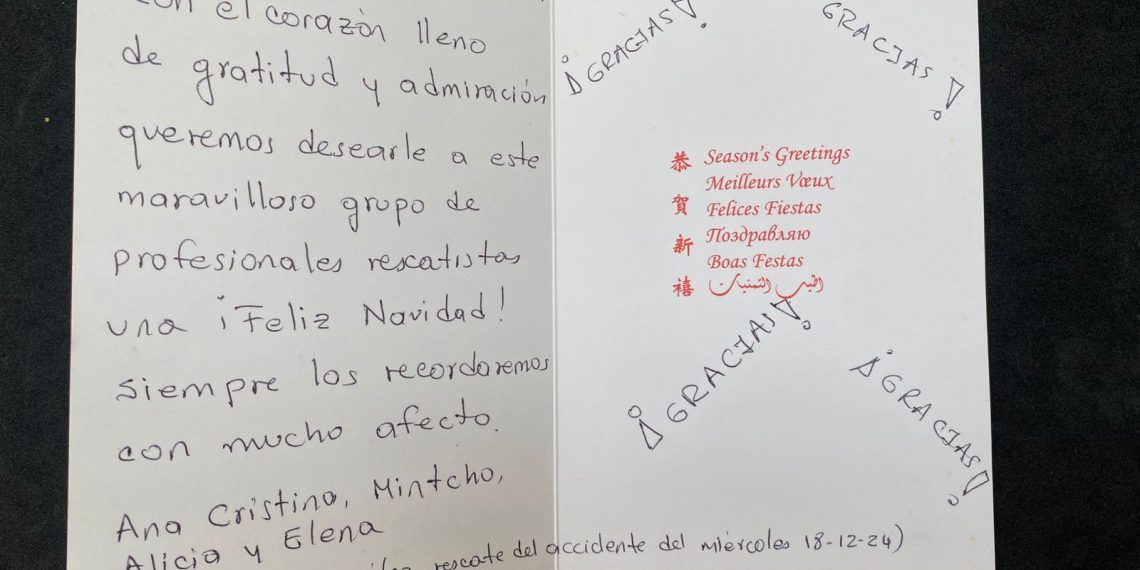 con el corazón lleno
de gratitud y admiración
queremos desearle a este
maravilloso grupo de
profesionales rescatistas
una ¡Feliz Navidad!
siempre los recordaremos
con mucho afecto.
Ana Cristina, Mintcho,
Alicia y Elena
rescate del accidente del miércoles 18-12-24)
¡GRACIAS!
GRACIAS!
恭賀新禧
Season's Greetings
Meilleurs Vœux
Felices Fiestas
Поздравляю
Boas Festas
اطيب التمنيات
¡GRACIAS!
¡GRACIAS!